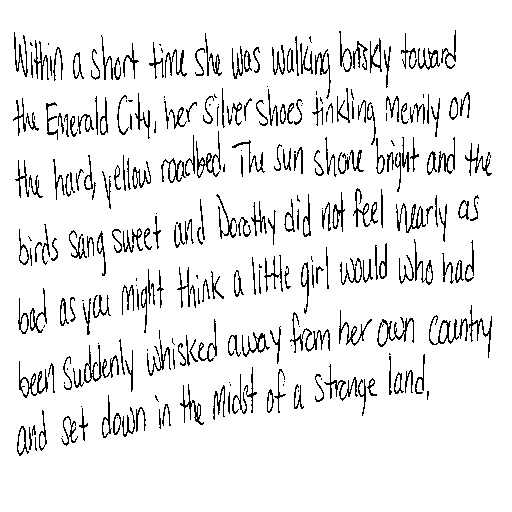 Within a short time she was walking briskly toward
the Emerald City, her Silver Shoes tinkling merrily on
the hard, yellow roadbed. The sun shone bright and the
birds sang sweet and Dorothy did not feel nearly as
bad as you might think a little girl would who had
been suddenly whisked away from her own country
and set down in the midst of a strange land.